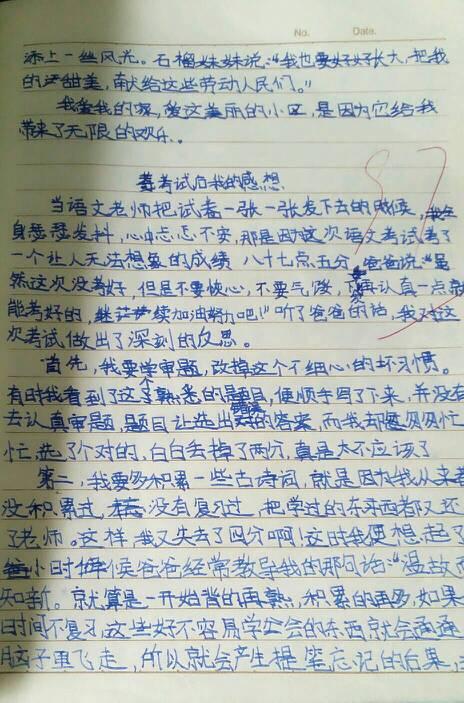 No. Date.
添上一丝风光。石榴妹妹说："我也要好好长大，把我
的甜美，献给这些劳动人民们。"
我爱我的家，爱这美丽的小区，是因为它给我
带来了无限的欢乐。
考试后我的感想
当语文老师把试卷一张一张发下去的时候，我全
身瑟瑟发抖，心中忐忑不安，那是因为这次语文考试考了
一个让人无法想象的成绩 八十七点五分，爸爸说："虽
然这次没考好，但是不要灰心，不要气馁，下次再认真一点就
能考好的，继续加油努力吧！"听了爸爸的话，我对这
次考试做出了深刻的反思。
首先，我要学审题，改掉这个不细心的坏习惯。
有时我看到了这个熟悉的题目，便顺手写了下来，并没有
去认真审题，题目让选出错误的答案，而我却匆匆
忙选了个对的，白白丢掉了两分，真是太不应该了
第二，我要多积累一些古诗词，就是因为我从来都
没积累过，没有复习过，把学过的东西都又还
了老师。这样，我又失去了四分啊！这时我便想起了
小时候爸爸经常教导我的那句话："温故而
知新。就算是一开始背的再熟，积累的再多，如果
时间不复习，这些好不容易学会的东西就会通通
脑子里飞走，所以就会产生提笔忘记的后果，
87